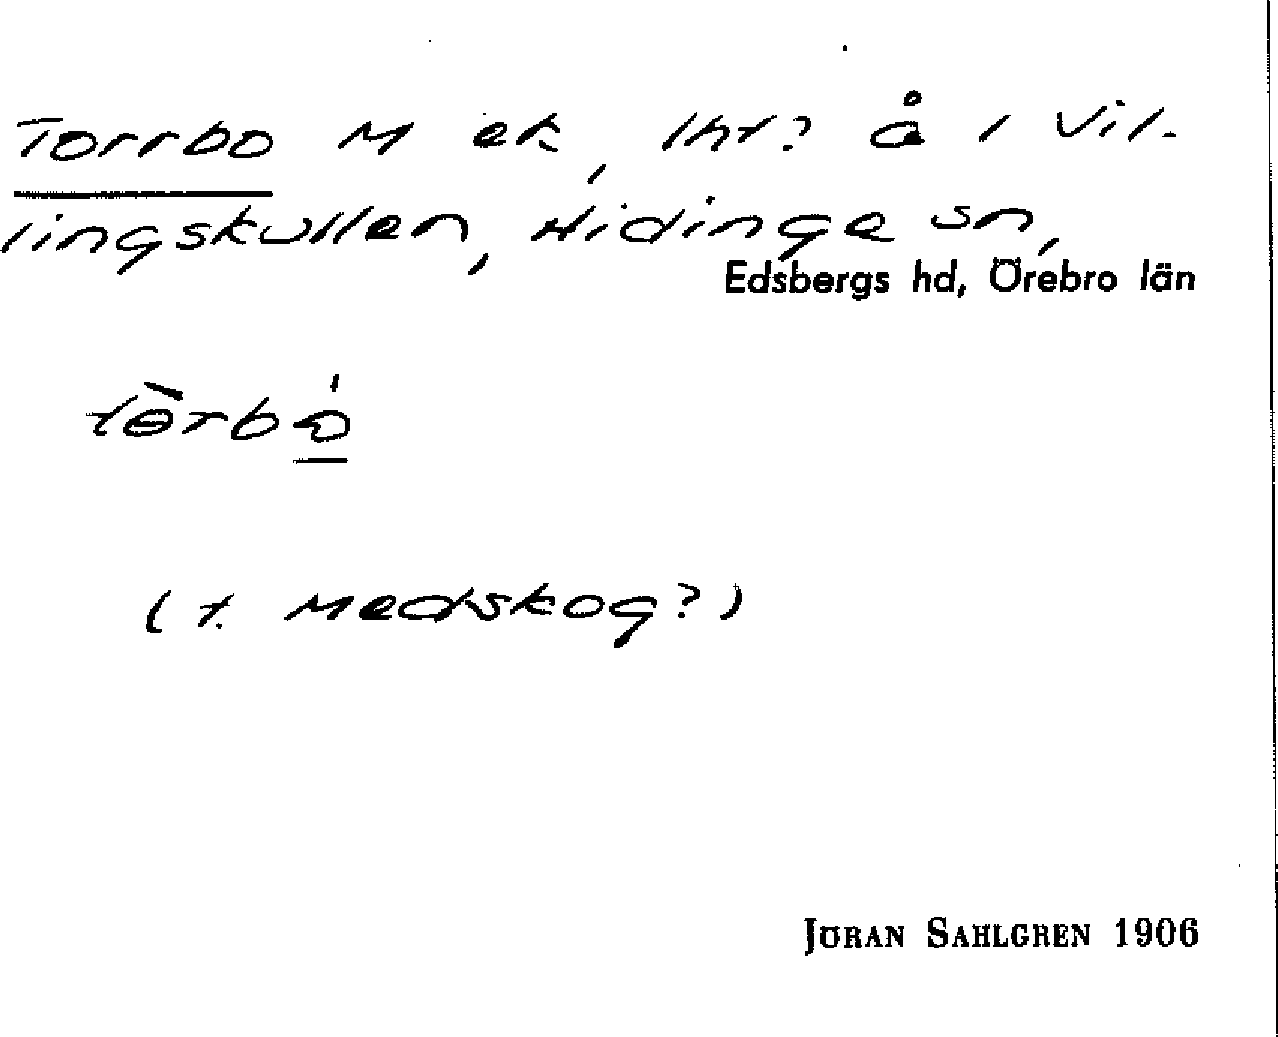 Torrbo M ek, lht? å 1 Vil-
lingskullen, Hidinge sn,
Edsbergs hd, Örebro län
tɵ̀rbɷ̀
(t. Medskog?)
JÖRAN SAHLGREN 1906